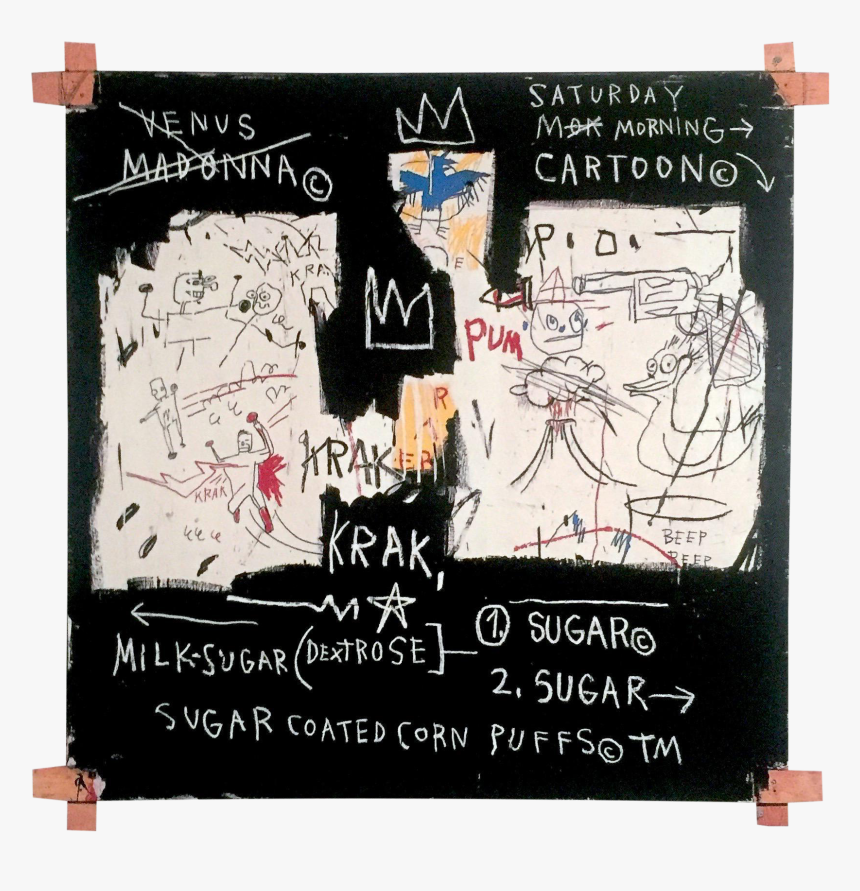 VENUS
MADONNA©
SATURDAY
MOK MORNING→
CARTOON©
KRA
P.O.
E
PUM
R
KRAK
ER
KRAK
KRAK,
BEEP
BEEP
MILK-SUGAR (DEXTROSE]
1. SUGAR©
2. SUGAR→
SUGAR COATED CORN PUFFS© TM